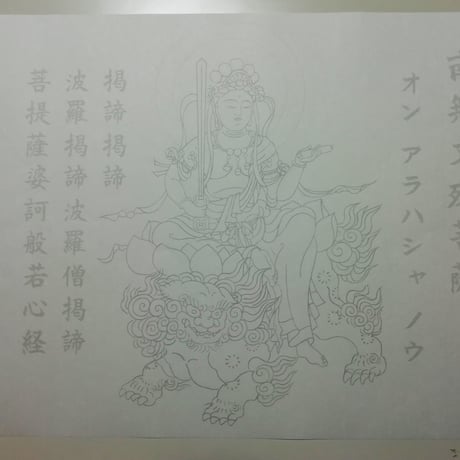 南無文殊菩薩
オン アラハシャ ノウ
掲諦掲諦
波羅掲諦波羅僧掲諦
菩提薩婆訶般若心経